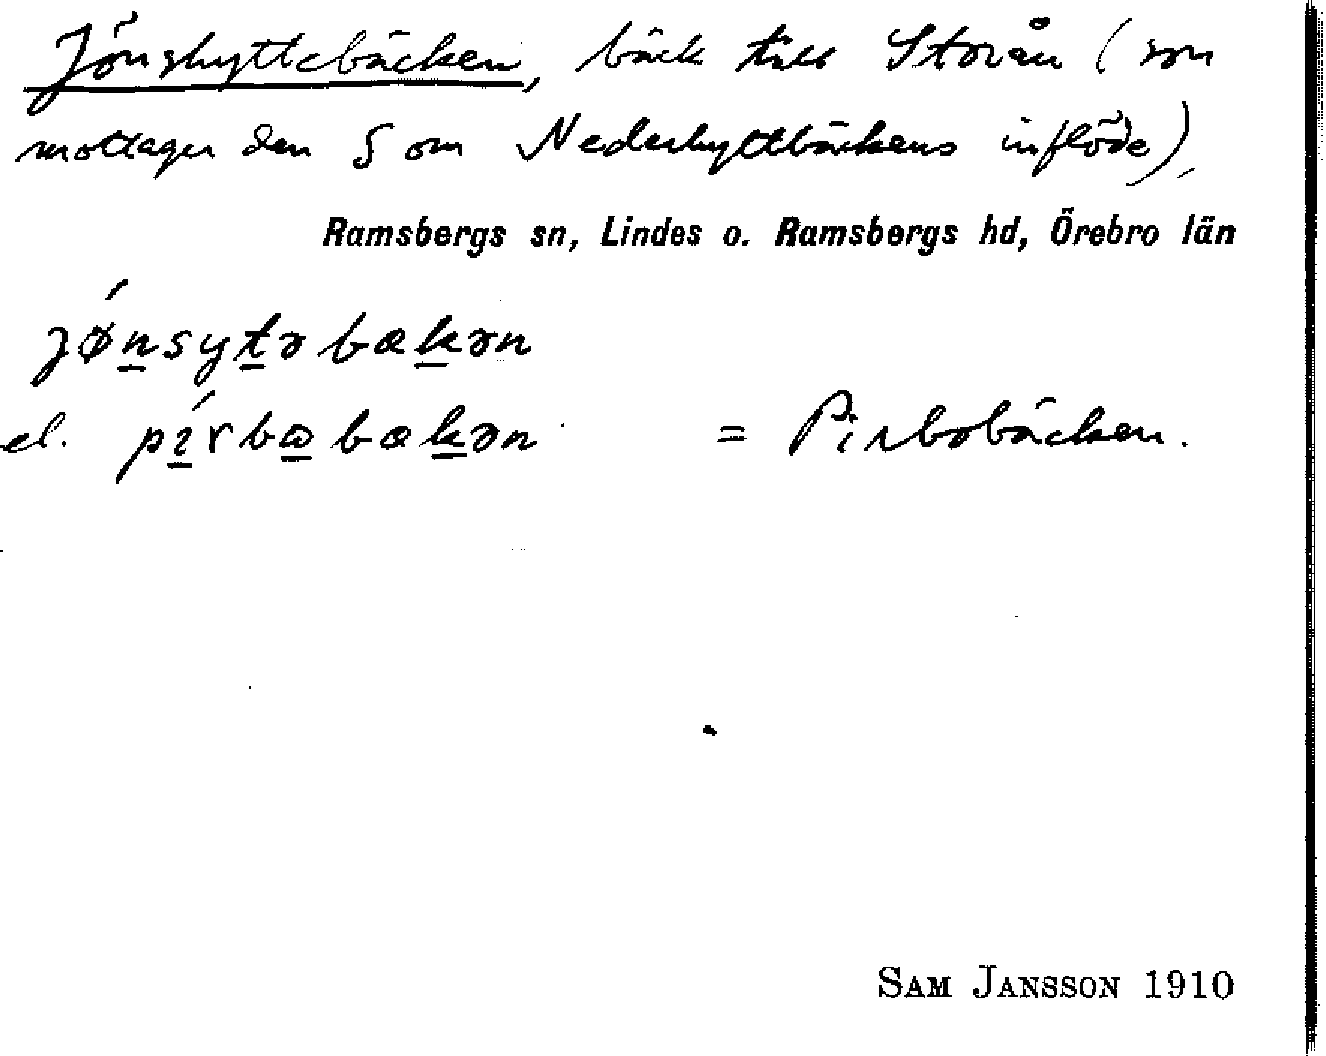 Jönshyttebäcken, bäck till Storån (som
mottager den S om Nederhyttbäckens inflöde),
Ramsbergs sn, Lindes o. Ramsbergs hd, Örebro län
jǿn̲syt̲əbæk̲ən
el. pí̲rbω̲bæk̲ən = Pirbobäcken.
SAM JANSSON 1910